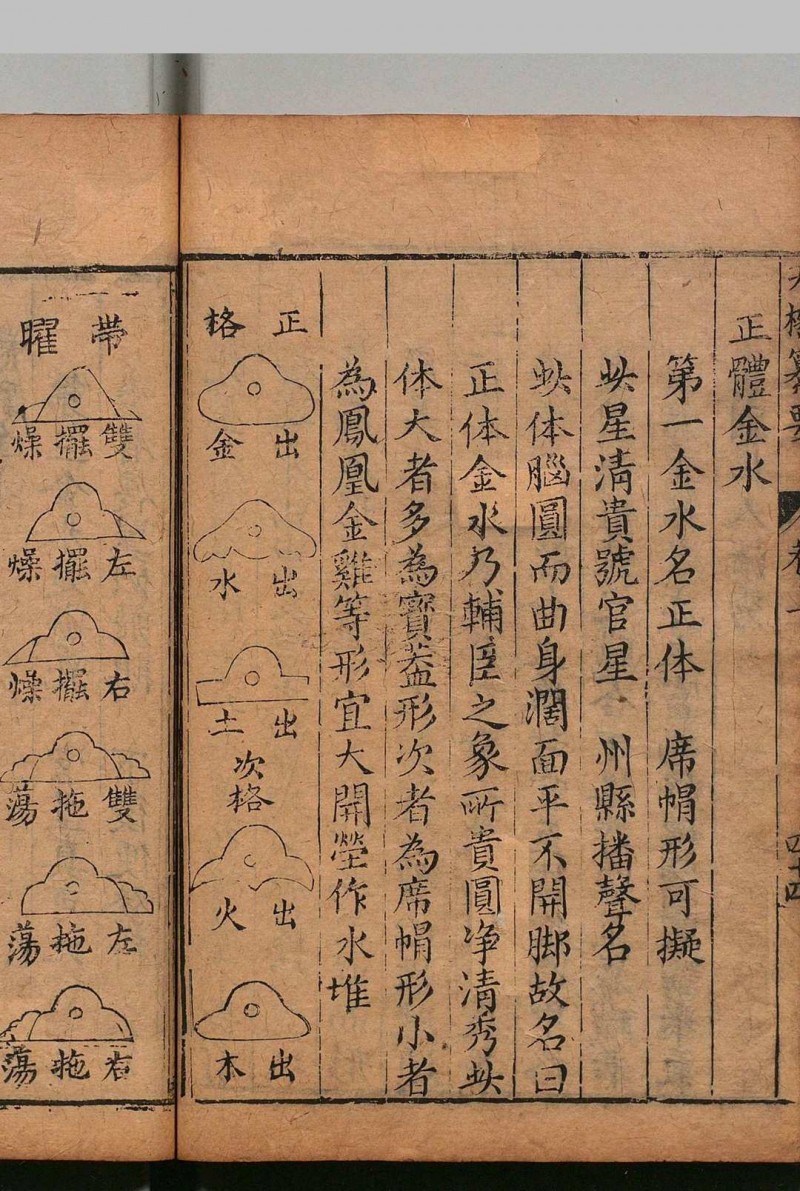 卷一
四十四
正體金水
第一金水名正体　席帽形可擬
此星清貴號官星　州縣播聲名
此体腦圓而曲身濶面平不開脚故名曰
正体金水乃輔臣之象所貴圓净清秀此
体大者多為寳葢形次者為席帽形小者
為鳳凰金雞等形宜大開塋作水堆
正格
出金
出水
出土
次格
出火
出木
帶曜
雙擺燥
左擺燥
右擺燥
雙拖蕩
左拖蕩
右拖蕩